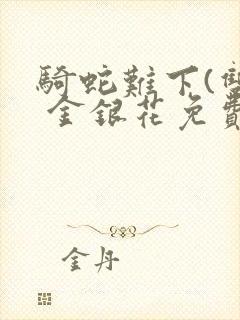 騎蛇難下(雙
金銀花免費
金丹